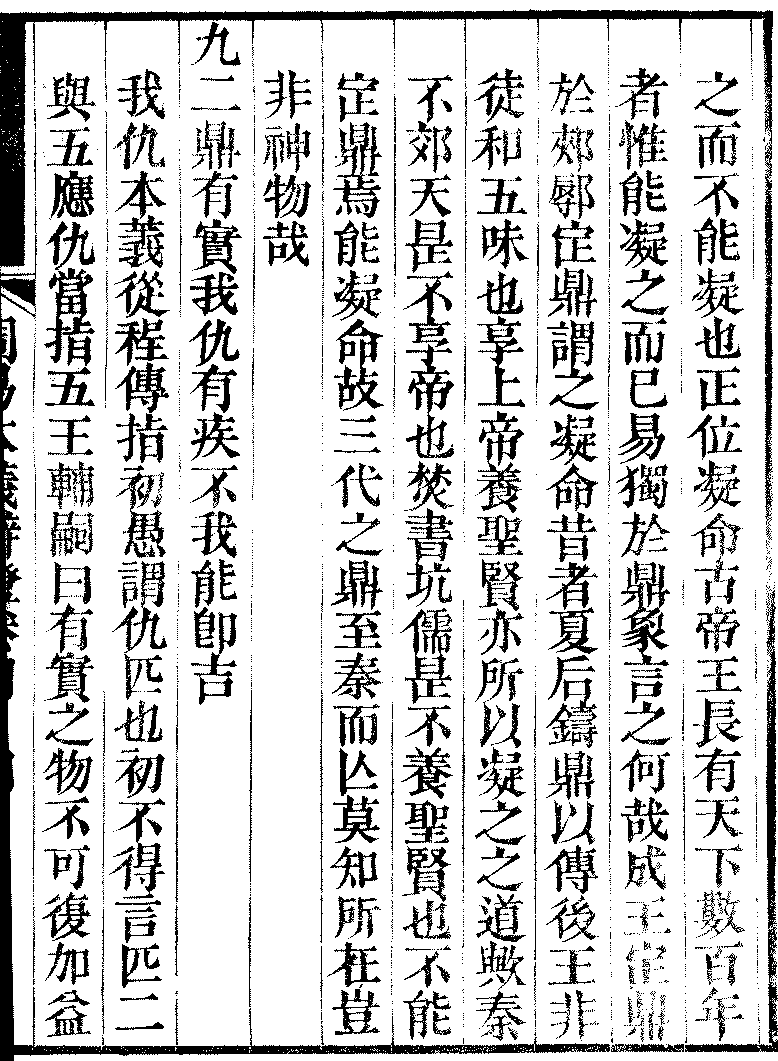 之而不能凝也正位凝命古帝王長有天下數百年
者惟能凝之而已易獨於鼎象言之何哉成王定鼎
於郟鄏定鼎謂之凝命昔者夏后鑄鼎以傳後王非
徒和五味也享上帝養聖賢亦所以凝之之道歟秦
不郊天是不享帝也焚書坑儒是不養聖賢也不能
定鼎焉能凝命故三代之鼎至秦而亾莫知所在豈
非神物哉
九二鼎有實我仇有疾不我能卽吉
我仇本義從程傳指初愚謂仇匹也初不得言匹二
與五應仇當指五王輔嗣曰有實之物不可復加益
周易本義辯證卷